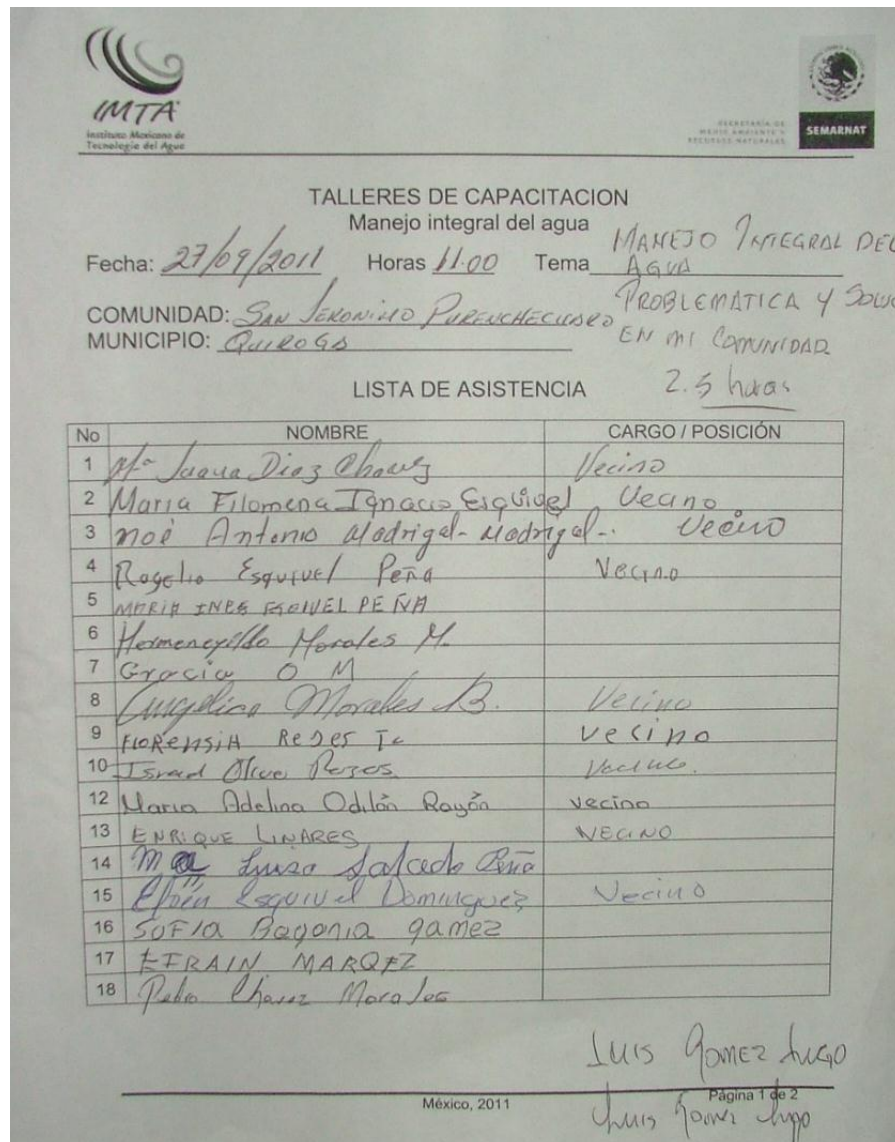 IMTA
Instituto Mexicano de
Tecnología del Agua
SECRETARÍA DE
MEDIO AMBIENTE Y
RECURSOS NATURALES
SEMARNAT
TALLERES DE CAPACITACION
Manejo integral del agua
Fecha: 27/09/2011 Horas 11:00 Tema MANEJO INTEGRAL DEL
AGUA
PROBLEMATICA Y SOLUC
EN MI COMUNIDAD
COMUNIDAD: SAN JERONIMO PURENCHECUARO
MUNICIPIO: QUIROGA
2.5 horas
LISTA DE ASISTENCIA
No NOMBRE CARGO / POSICIÓN
1 Ma Juana Diaz Chavez Vecino
2 Maria Filomena Ignacio Esquivel Vecino
3 noé Antonio Madrigal - Madrigal -. Vecino
4 Rogelio Esquivel Peña Vecino
5 MARIA INES ESQUIVEL PEÑA
6 Hermenegildo Morales M.
7 Gracia O M
8 Angelica Morales B. Vecino
9 FLORENSIA Reyes Vecino
10 Israel Olivo Vecino.
12 Maria Adelina Odilón Rayón vecino
13 ENRIQUE LINARES VECINO
14 Ma Luisa Salcedo Peña
15 Efrén Esquivel Dominguez Vecino
16 SOFIA Bagonia gamez
17 EFRAIN MARQEZ
18 Pedro Chavez Morales
LUIS GOMEZ LUGO
México, 2011
Página 1 de 2
Luis Gomez Lugo